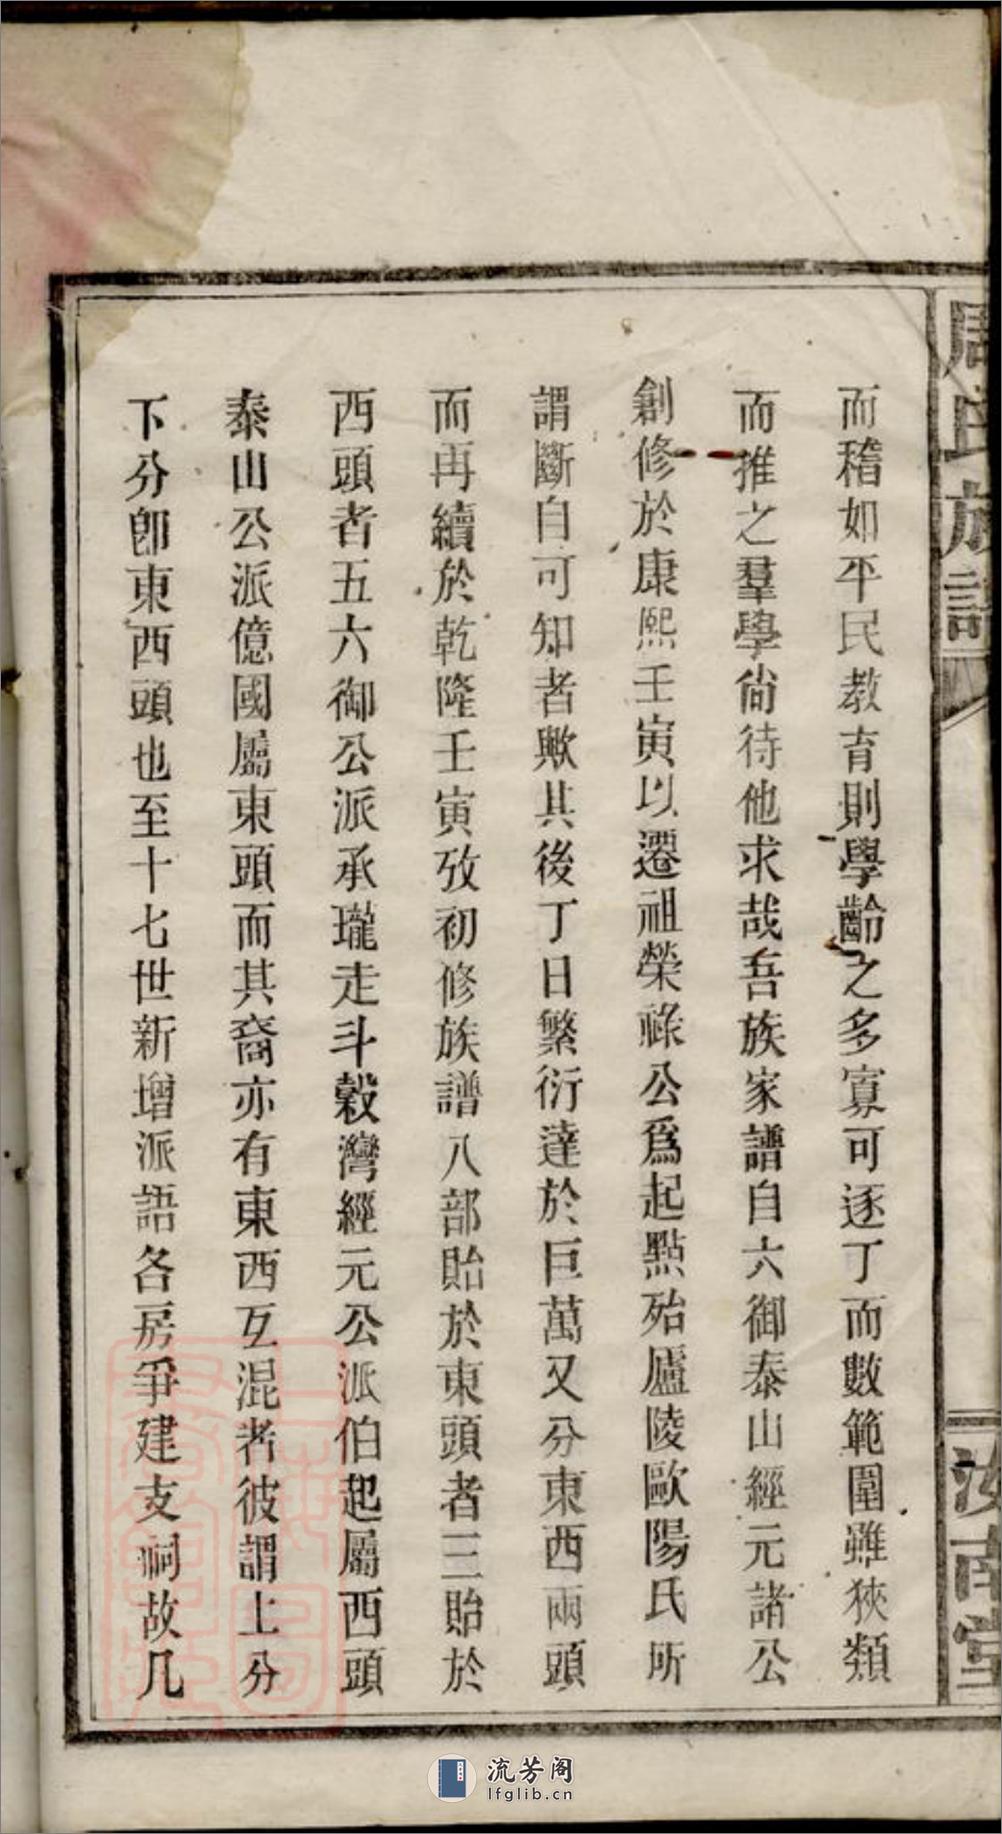 周氏族譜
汝南堂
而稽如平民教育則學齡之多寡可逐丁而數範圍雖狹類
而推之羣學尙待他求哉吾族家譜自六御泰山經元諸公
創修於康熙壬寅以遷祖榮祿公爲起點殆廬陵歐陽氏所
謂斷自可知者歟其後丁日繁衍達於巨萬又分東西兩頭
而再續於乾隆壬寅攷初修族譜八部貽於東頭者三貽於
西頭者五六御公派承瓏走斗榖灣經元公派伯起屬西頭
泰山公派億國屬東頭而其裔亦有東西互混者彼謂上分
下分卽東西頭也至十七世新增派語各房爭建支祠故凡
流芳阁
lfglib.cn